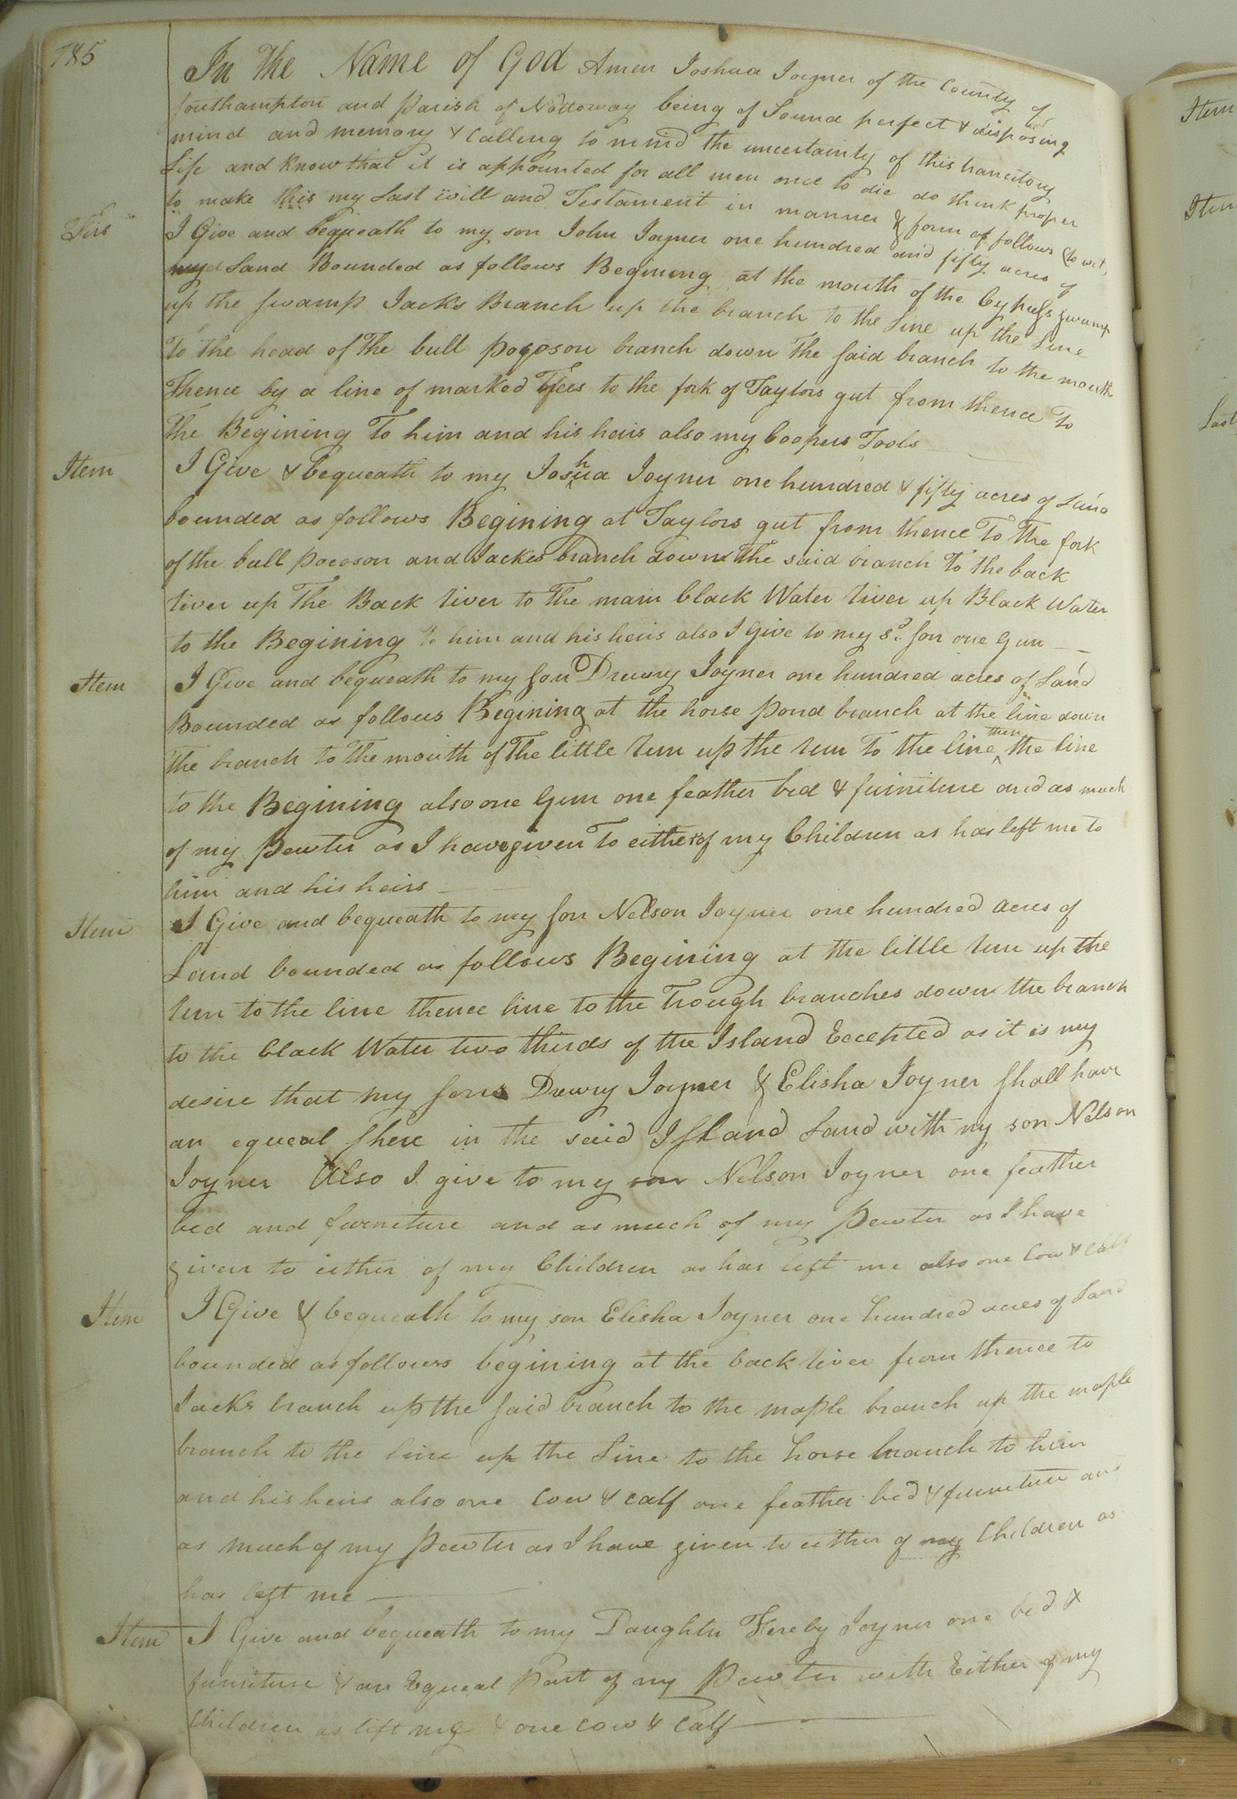 785
In the Name of God Amen Joshua Joyner of the County of
Southampton and Parish of Nottoway being of Sound perfect & disposing
mind and memory & Calling to mind the uncertainty of this trancitory
Life and know that it is appointed for all men once to die do think proper
to make this my Last will and Testament in manner & form as follows (to wit)
First I Give and bequeath to my son John Joyner one hundred and fifty acres of
my Land Bounded as follows Begining at the mouth of the Cypress Swamp
up the Swamp Jacks Branch up the branch to the Line up the Line
To the head of the bull pocoson branch down the said branch to the mouth
thence by a line of marked Trees to the fork of Taylors gut from thence To
the Begining To him and his heirs also my Coopers Tools
Item I Give & bequeath to my Joshua Joyner one hundred & fifty acres of Land
bounded as follows Begining at Taylors gut from thence To the fork
of the bull Pocoson and Jackes branch down the said branch to the back
river up The Back river to the main black Water river up Black Water
to the Begining to him and his heirs also I Give to my sd. son one Gun
Item I Give and bequeath to my son Drewry Joyner one hundred acres of Land
Bounded as follows Begining at the horse pond branch at the line down
the branch to the mouth of The little run up the run to the line then the line
to the Begining also one Gun one feather bed & furniture and as much
of my Pewter as I have given To either of my Children as has left me to
him and his heirs
Item I Give and bequeath to my son Nelson Joyner one hundred acres of
Land bounded as follows Begining at the little run up the
run to the line thence line to the Trough branches down the branch
to the black Water two thirds of the Island Eccepted as it is my
desire that my sons Drewry Joyner & Elisha Joyner shall have
an equeal shere in the said Island Land with my son Nelson
Joyner Also I give to my son Nelson Joyner one feather
bed and furniture and as much of my Pewter as I have
given to either of my Children as has left me also one Cow & Calf
Item I Give & bequeath to my son Elisha Joyner one hundred acres of Land
bounded as follows begining at the back river from thence to
Jacks branch up the said branch to the maple branch up the maple
branch to the line up the Line to the horse branch to him
and his heirs also one Cow & calf one feather bed & furniture and
as much of my Pewter as I have given to either of my Children as
has left me
Item I Give and bequeath to my Daughter Fereby Joyner one bed &
furniture & an Equeal Part of my Pewter with Either of my
Children as lift me & one cow & Calf
Item
Item
Last